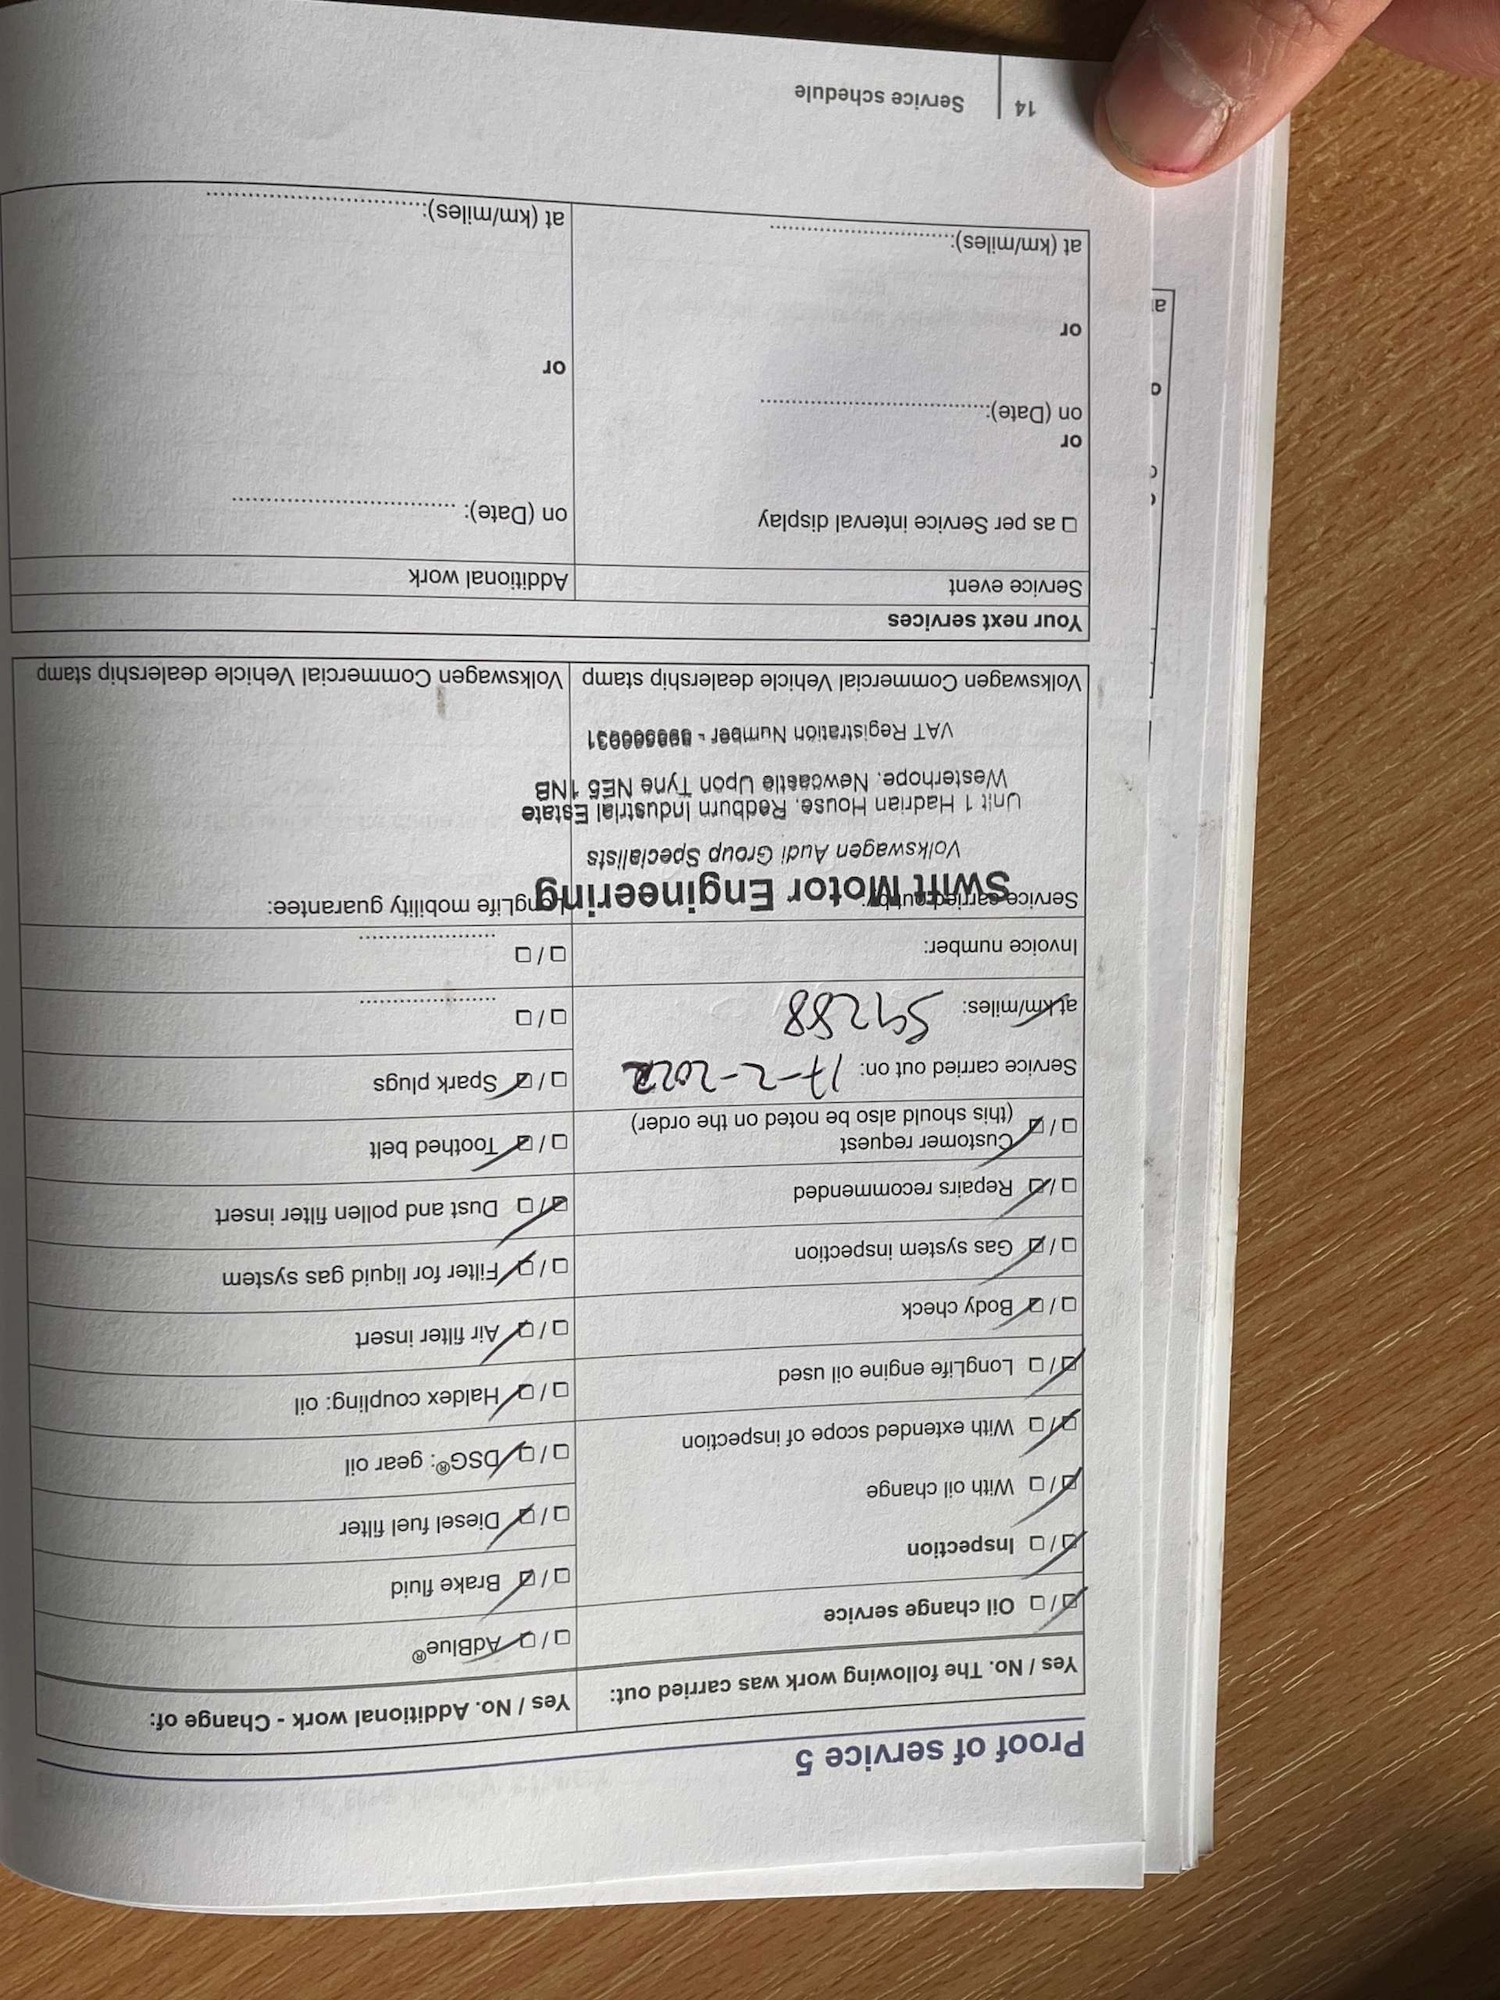 Proof of service 5
Yes / No. The following work was carried out:
❑ / ❑ Oil change service
❑ / ❑ Inspection
❑ / ❑ With oil change
❑ / ❑ With extended scope of inspection
❑ / ❑ LongLife engine oil used
❑ / ❑ Body check
❑ / ❑ Gas system inspection
❑ / ❑ Repairs recommended
❑ / ❑ Customer request
(this should also be noted on the order)
Service carried out on: 17-2-2022
at km/miles: 59288
Invoice number:
Service carried out by:
Swift Motor Engineering
Volkswagen Audi Group Specialists
Unit 1 Hadrian House, Redburn Industrial Estate
Westerhope, Newcastle Upon Tyne NE5 1NB
VAT Registration Number -
Volkswagen Commercial Vehicle dealership stamp
Yes / No. Additional work - Change of:
❑ / ❑ AdBlue®
❑ / ❑ Brake fluid
❑ / ❑ Diesel fuel filter
❑ / ❑ DSG®: gear oil
❑ / ❑ Haldex coupling: oil
❑ / ❑ Air filter insert
❑ / ❑ Filter for liquid gas system
❑ / ❑ Dust and pollen filter insert
❑ / ❑ Toothed belt
❑ / ❑ Spark plugs
❑ / ❑ ......................
❑ / ❑ ......................
LongLife mobility guarantee:
Volkswagen Commercial Vehicle dealership stamp
Your next services
Service event
❑ as per Service interval display
or
on (Date):....................................
or
at (km/miles):.............................
Additional work
on (Date): ...................................
or
at (km/miles):...................................
14 Service schedule